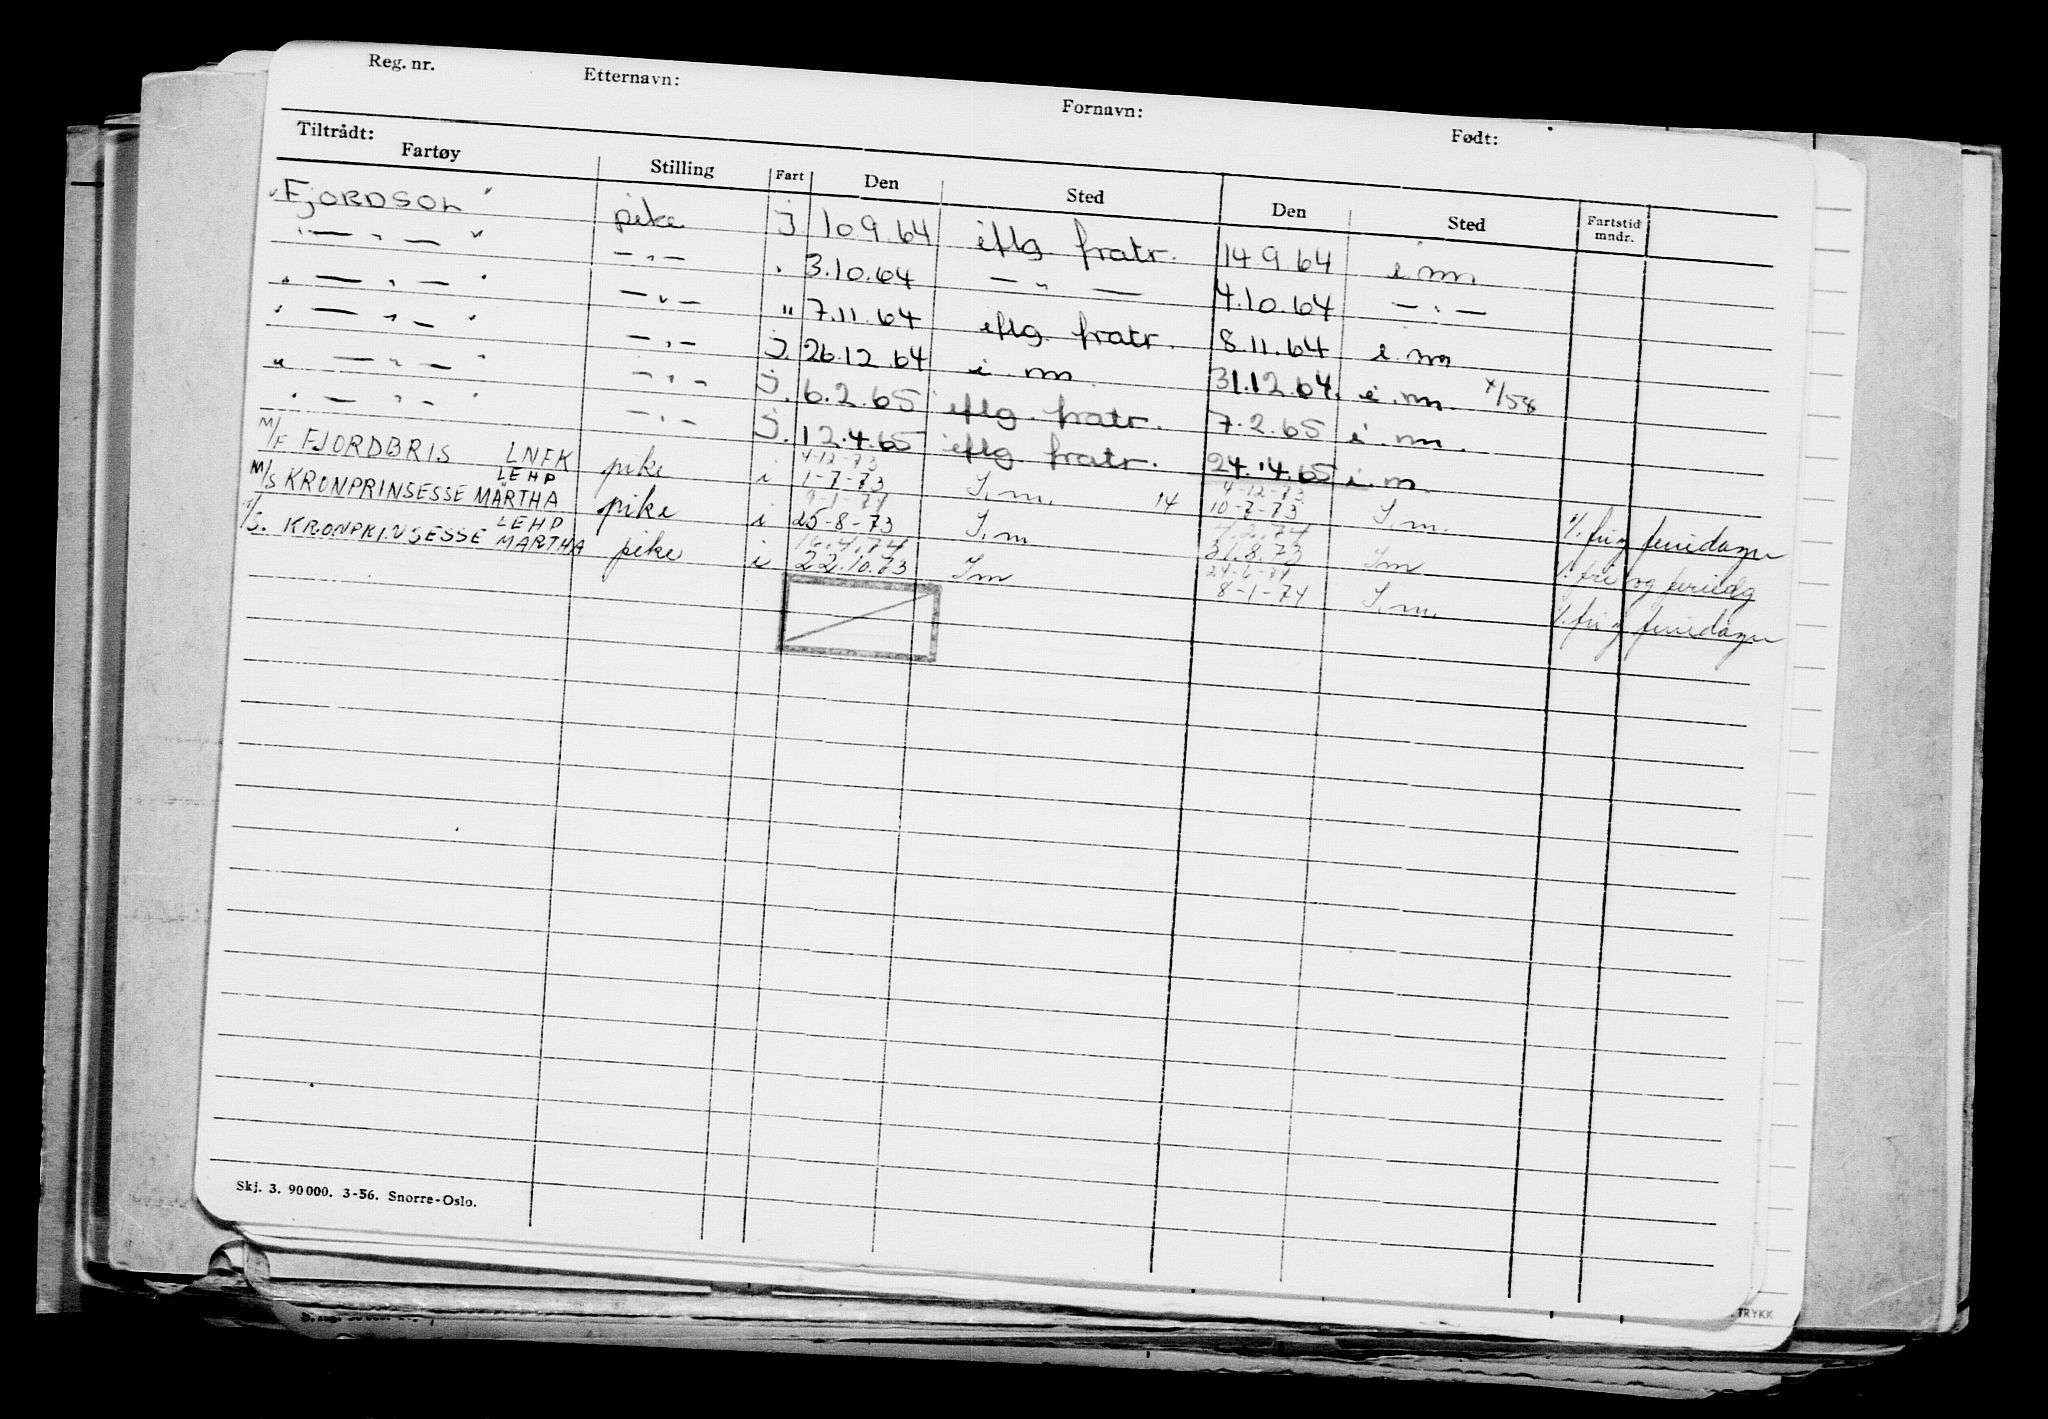 Reg. nr. Etternavn: Fornavn: Født:
Tiltrådt:
Fartøy Stilling Fart Den Sted Den Sted Fartstid mndr.
"FJORDSOL" pike j 10 9. 64 eflg. fratr. 14 9 64 i m
" — " — " — " — . 3.10.64 — " — 4.10.64 — " —
" — " — " — " — " 7.11.64 eflg. fratr. 8.11.64 i m
" — " — " — " — j. 26.12.64 i m. 31.12.64. i.m. x/58
" — " — " — " — j. 6.2.65 eflg. fratr. 7.2.65 i.m.
" — " — " — " — j. 12.4.65 eflg fratr. 24.4.65 i.m.
4-12-73 4-12-73
M/F FJORDBRIS LNFK pike i 1-7-73 I.m. 14 10-7-73 I.m. %. fri og feriedager
LEHP 9-1-74 4.2.74
M/S KRONPRINSESSE MÄRTHA pike i 25-8-73 I.m 31.8.73 Im %. fri og feriedg
LEHP 16.4.74 24-6-74
M/S. KRONPRINSESSE MÄRTHA pike i 22.10.73 Im 8-1-74 I.m. %. fri og feriedager
Skj. 3. 90 000. 3-56. Snorre-Oslo.
TRYKK